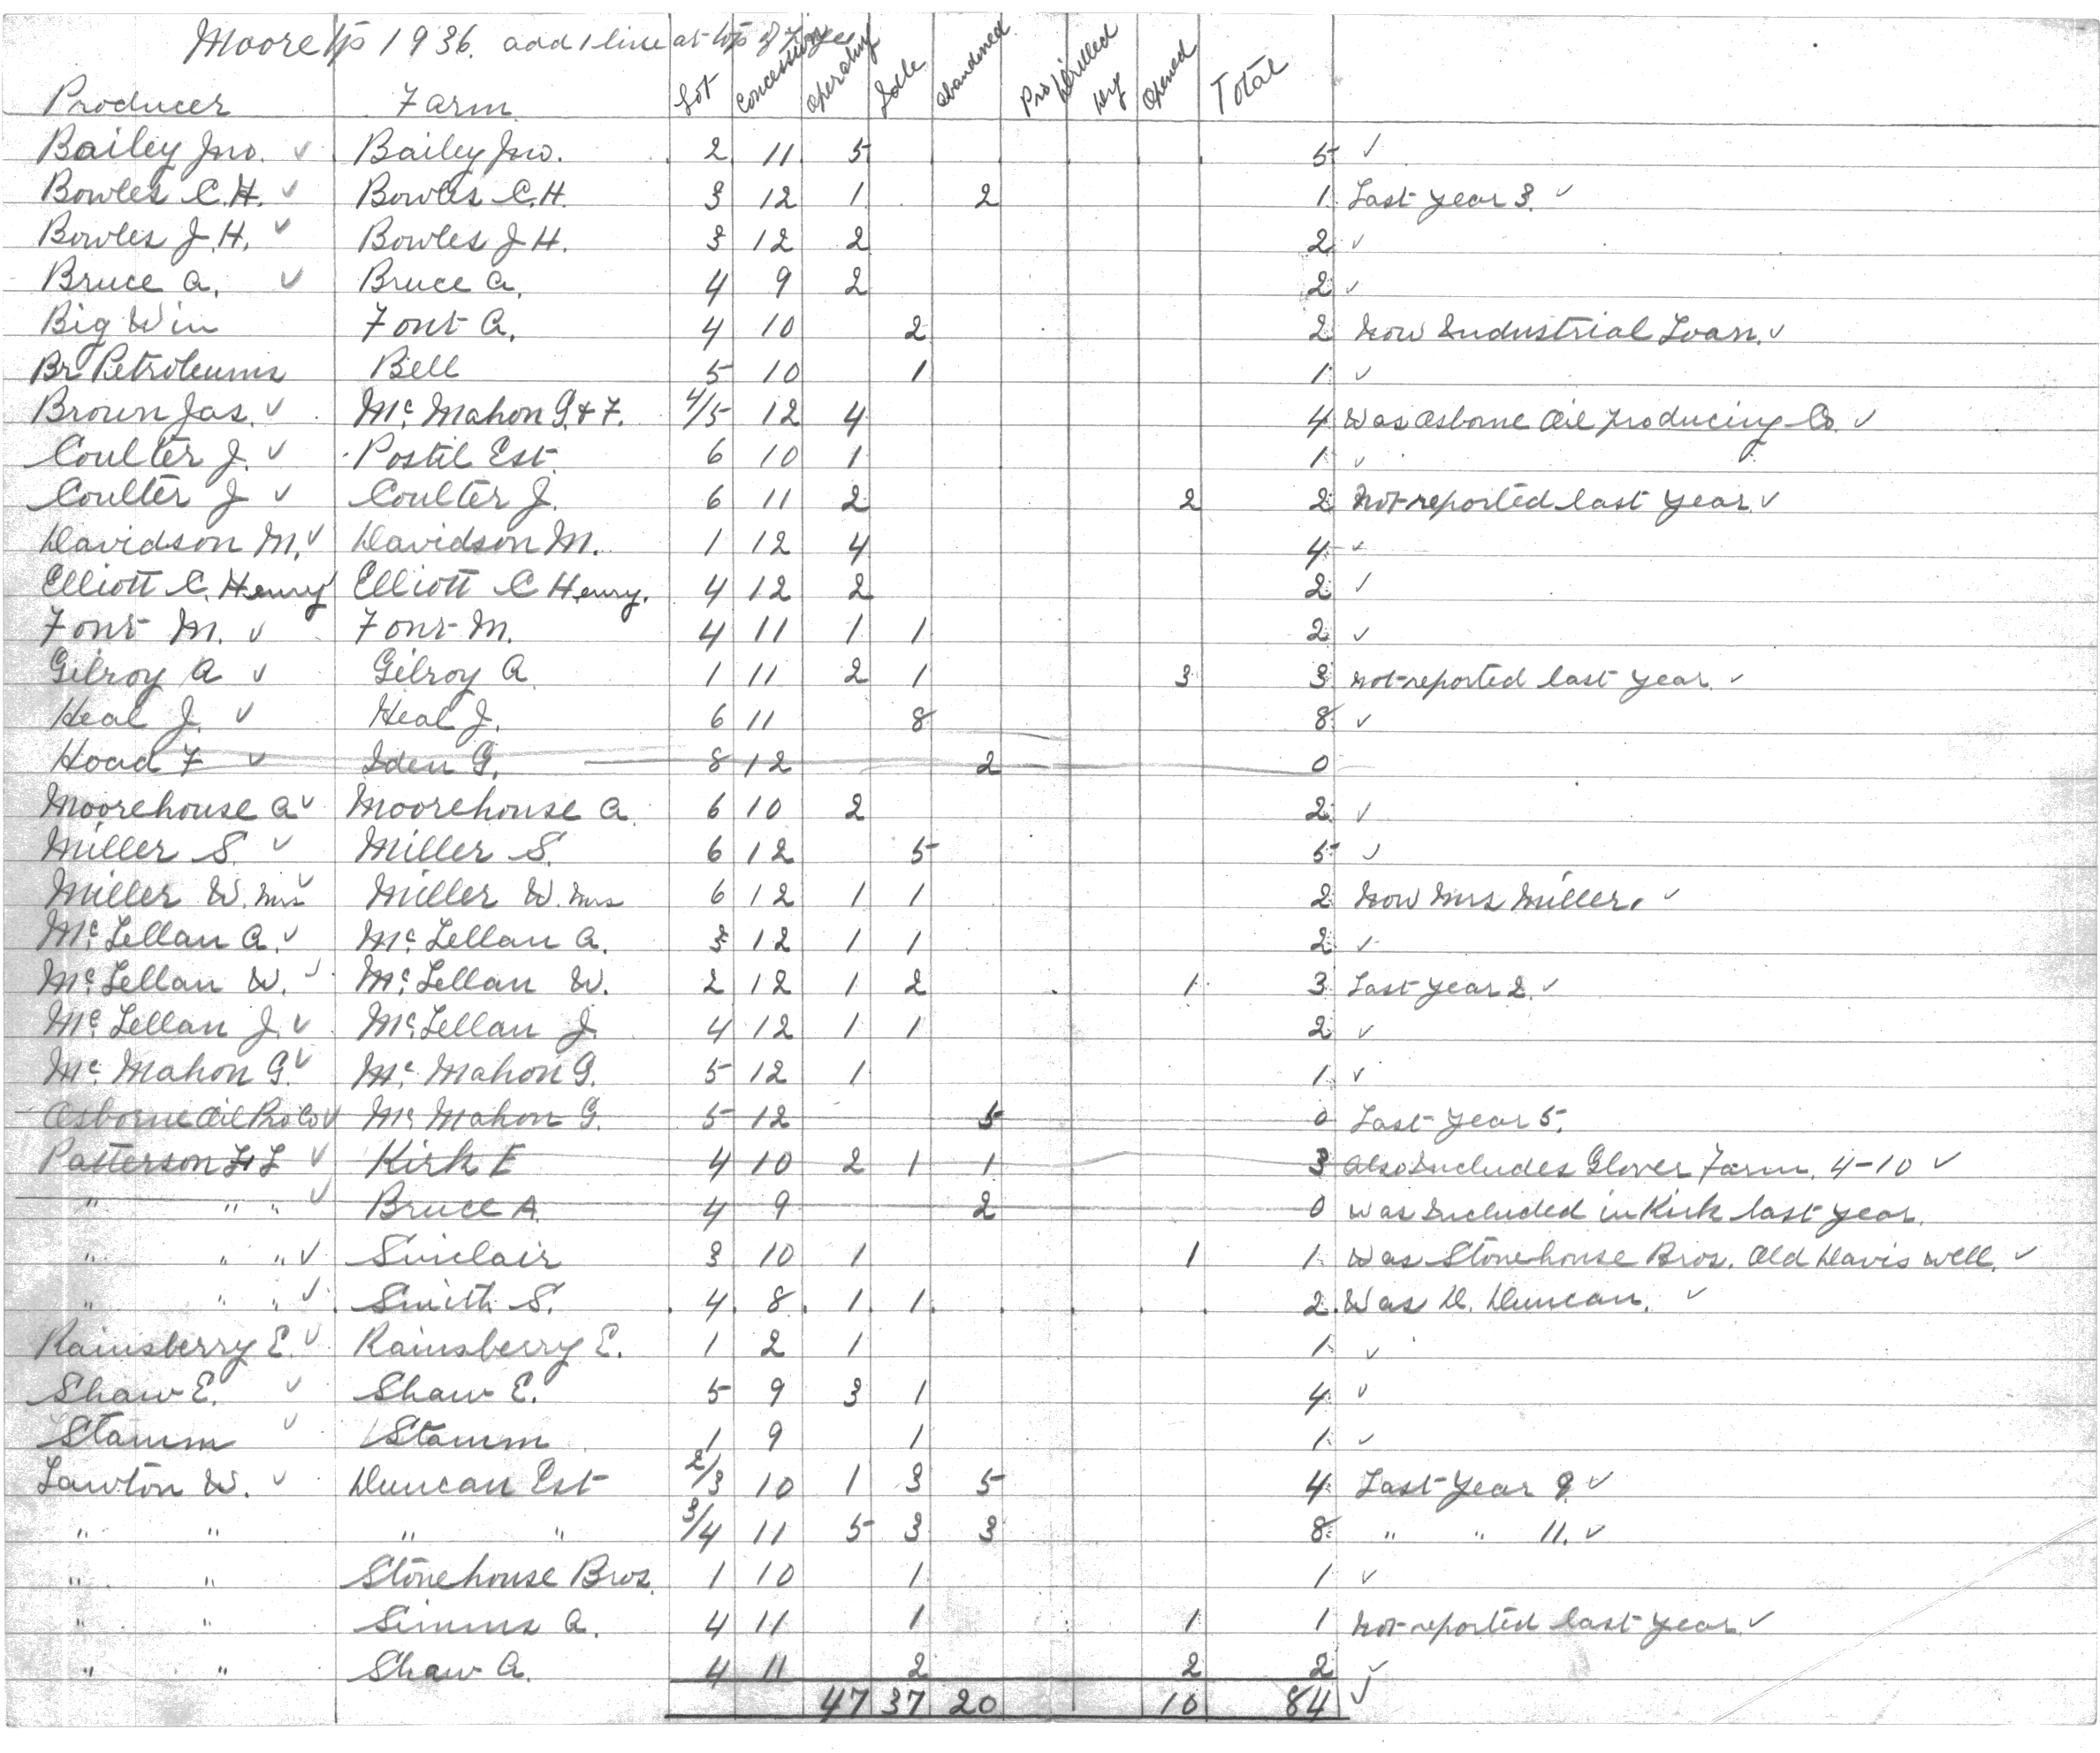 Moore Tp 1936. add 1 line at top of Page
Producer Farm Lot Concession Operating Idle Abandoned Pro Drilled Dry Opened Total
Bailey Jno. ✓ Bailey Jno. 2 11 5 5 ✓
Bowles C.H. ✓ Bowles C.H. 3 12 1 2 1 Last year 3. ✓
Bowles J.H. ✓ Bowles J H. 3 12 2 2 ✓
Bruce A. ✓ Bruce A. 4 9 2 2 ✓
Big Win Font A. 4 10 2 2 Now Industrial Loan. ✓
Br Petroleums Bell 5 10 1 1 ✓
Brown Jas. ✓ Mc Mahon G. & F. 4/5 12 4 4 Was Osborne Oil Producing Co. ✓
Coulter J. ✓ Postil Est. 6 10 1 1 ✓
Coulter J ✓ Coulter J. 6 11 2 2 2 Not reported last year. ✓
Davidson M. ✓ Davidson M. 1 12 4 4 ✓
Elliott C. Henry Elliott C Henry. 4 12 2 2 ✓
Font M. ✓ Font M. 4 11 1 1 2 ✓
Gilroy A ✓ Gilroy A 1 11 2 1 3 3 not reported last year. ✓
Heal J. ✓ Heal J. 6 11 8 8 ✓
Hoad F ✓ Iden G. 8 12 2 0
Moorehouse A ✓ Moorehouse A 6 10 2 2 ✓
Miller S. ✓ Miller S. 6 12 5 5 ✓
Miller W. Mrs ✓ Miller W. Mrs 6 12 1 1 2 Now Mrs Miller. ✓
Mc Lellan A. ✓ Mc Lellan A. 3 12 1 1 2 ✓
Mc Lellan W. ✓ Mc Lellan W. 2 12 1 2 1 3 Last year 2. ✓
Mc Lellan J. ✓ Mc Lellan J. 4 12 1 1 2 ✓
Mc Mahon G. ✓ Mc Mahon G. 5 12 1 1 ✓
Osborne Oil Pro Co ✓ Mc Mahon G. 5 12 5 0 Last year 5.
Patterson ✓ Kirk E 4 10 2 1 1 3 Also Includes Glover Farm. 4-10 ✓
" " " ✓ Bruce A. 4 9 2 0 Was Included in Kirk last year.
" " " ✓ Sinclair 3 10 1 1 1 Was Stonehouse Bros. Old Davis well. ✓
" " " ✓ Smith S. 4 8 1 1 2 Was D. Duncan. ✓
Rainsberry E. ✓ Rainsberry E. 1 2 1 1 ✓
Shaw E. ✓ Shaw E. 5 9 3 1 4 ✓
Stamm ✓ Stamm 1 9 1 1 ✓
Lawton W. ✓ Duncan Est 2/3 10 1 3 5 4 Last Year 9. ✓
" " " " 3/4 11 5 3 3 8 " " 11. ✓
" " Stonehouse Bros. 1 10 1 1 ✓
" " Simms A. 4 11 1 1 1 Not reported last year ✓
" " Shaw A. 4 11 2 2 2 ✓
47 37 20 10 84 ✓